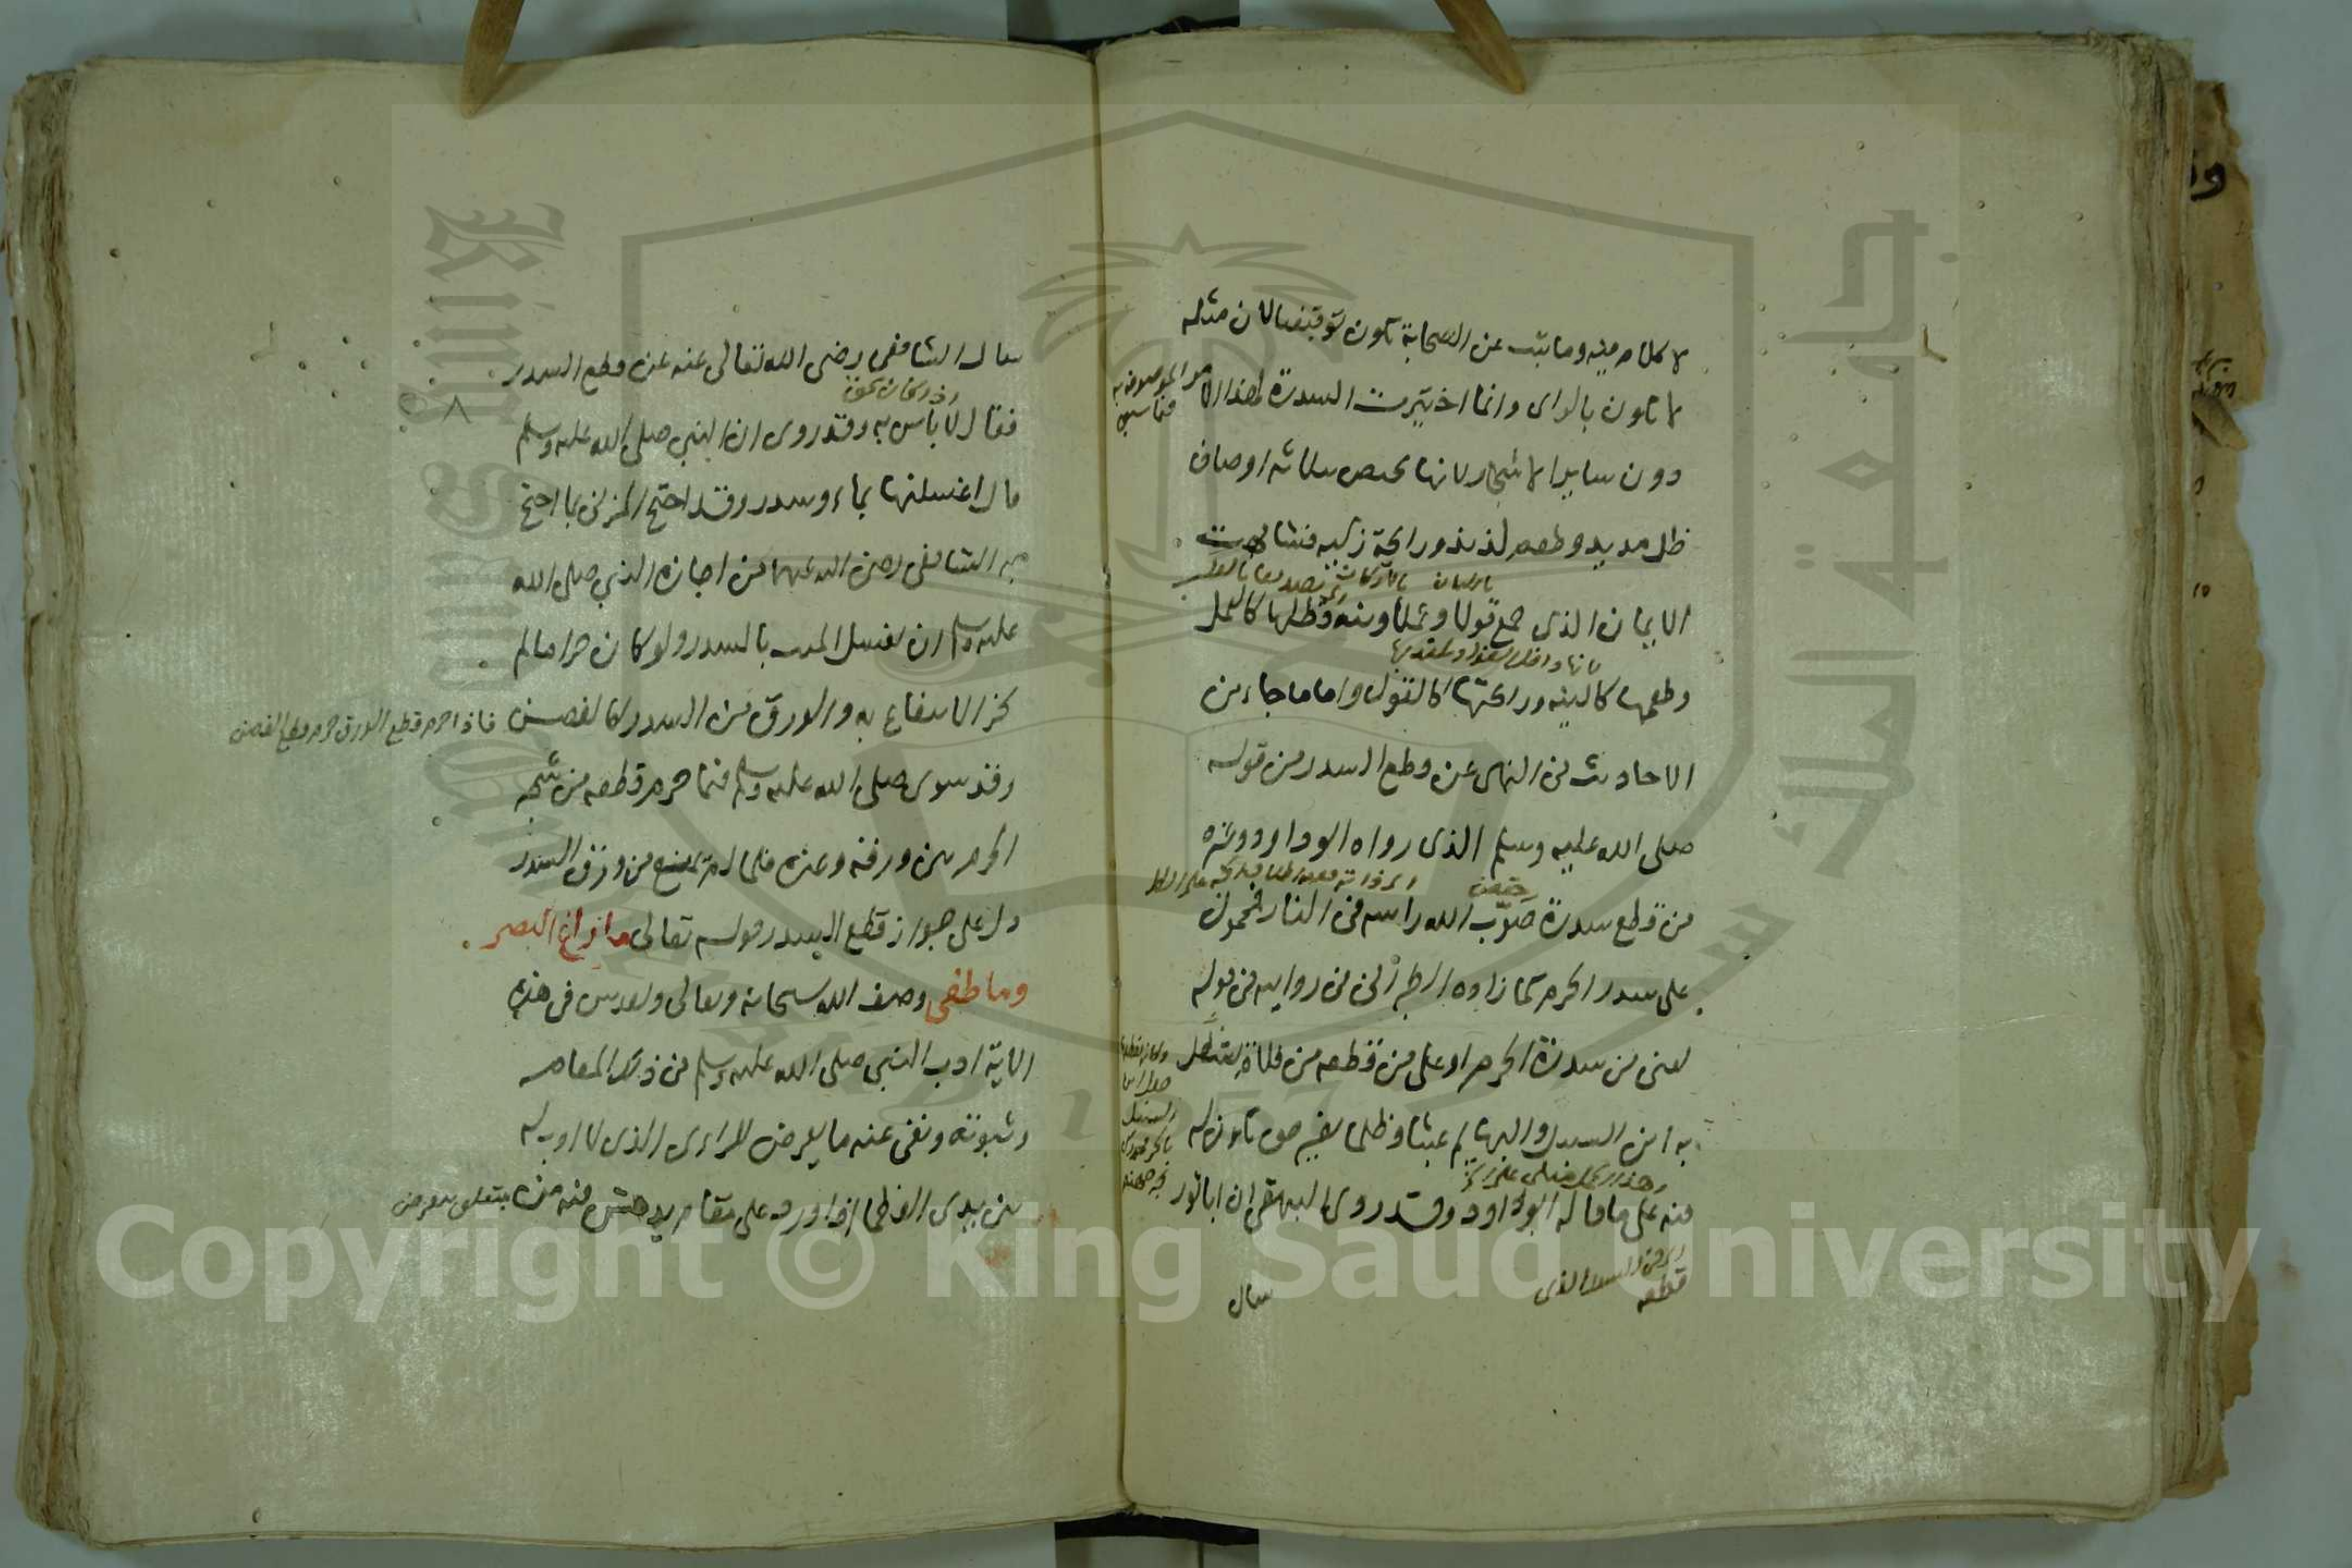 لا كلام فيه وما ثبت عن الصحابة يكون توقيفيا لان مثله
لا يكون بالراى وانما اختيرت السدرة لهذا الامر
الموصوف به
دون ساير الاشجار لانها تختص بثلاثة اوصاف
ظل مديد وطعم لذيذ ورائحة زكية فشابهت
الايمان الذى جمع قولا وعملا ونية فظلها كالعمل
وطعمها كالنية ورائحتها كالقول واما ما جاء من
الاحاديث فى النهى عن قطع السدر من قوله
صلى الله عليه وسلم الذى رواه ابو داود وغيره
من قطع سدرة صوّب الله راسه فى النار فمحمول
على سدر الحرم كما زاده الطبرانى فى روايته فى قوله
يعنى من سدرة الحرم او على من قطعه من فلاة يستظل
به ابن السبيل والبهايم عبثا وظلما بغير حق يكون له
فيه على ما قاله ابو داود وقد روى البيهقى ان ابا ثور
قطعه
سال
سال الشافعى رضى الله تعالى عنه عن قطع السدر
فقال لا باس به وقد روى ان النبي صلى الله عليه وسلم
قال اغسلنها بماء وسدر وقد احتج المزنى بما احتج
به الشافعى رضى الله عنهما من اجازة النبي صلى الله
عليه وسلم ان يغسل الميت بالسدر ولو كان حراما لم
يجز الانتفاع به والورق من السدر كالغصن فاذا حرم قطع الورق حرم قطع الغصن
وقد سوى صلى الله عليه وسلم فيما حرم قطعه من شجر
الحرم بين ورقه وغيره فلما لم يمنع من ورق السدر
دل على جواز قطع السدر قوله تعالى ما زاغ البصر
وما طغى وصف الله سبحانه وتعالى وتقدس فى هذه
الاية ادب النبي صلى الله عليه وسلم فى ذلك المقام
وثبوته ونفى عنه ما يعرض للرائى الذى لا ادب له
بين يدى العظما اذا ورد على مقام يدهش فيه من يتعلق بيعرض
King Saud University
جامعة الملك سعود
1957
Copyright © King Saud University